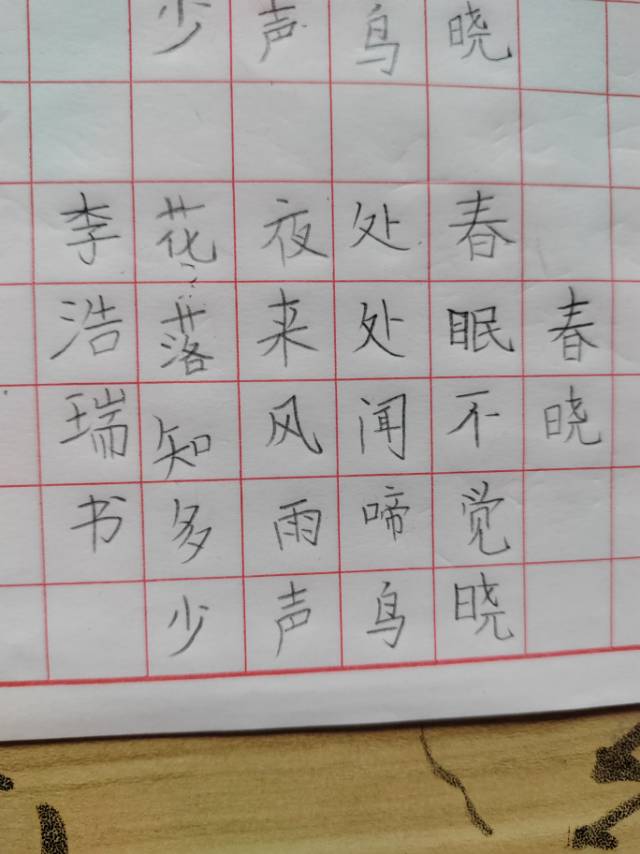 晓
鸟
声
少
春晓
春眠不觉晓
处处闻啼鸟
夜来风雨声
花落知多少
李浩瑞书